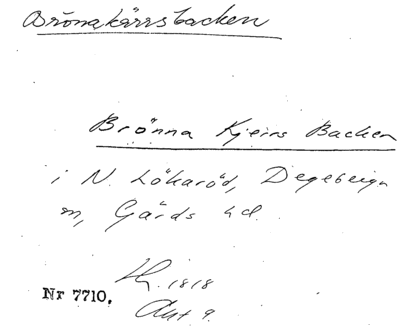 Brönakärrsbacken
Brönna Kjerrs Backen
i N. Lökaröd, Degeberga
sn, Gärds hd.
1818
Nr 7710.
Akt 9.